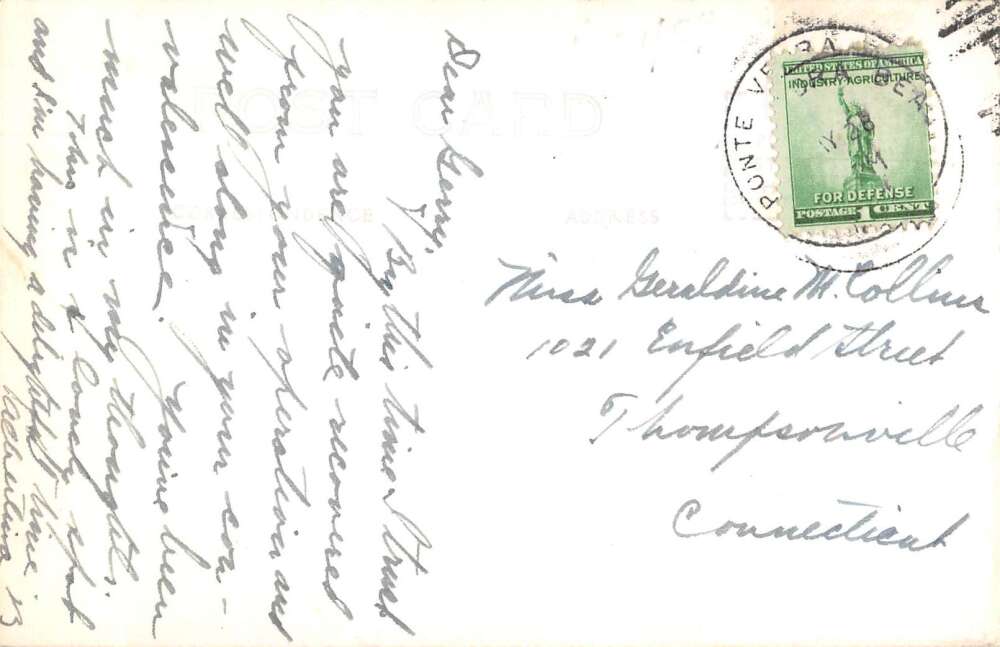 POST CARD
CORRESPONDENCE
ADDRESS
Dear Gerry,
By this time I trust
you are quite recovered
from your operation and
well along in your con-
valescence. You've been
much in my thoughts.
This is a lovely spot
and I'm having a delightful time.
PONTE VEDRA BEA
UNITED STATES OF AMERICA
INDUSTRY AGRICULTURE
FOR DEFENSE
POSTAGE 1 CENT
Miss Geraldine M. Collins
1021 Enfield Street
Thompsonville
Connecticut